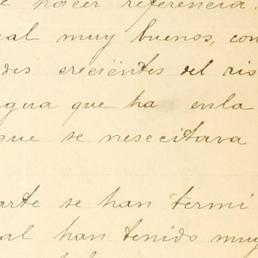 e hacer referencia.
al muy buenos, con
des crecientes del ris
agua que ha enla
que se nesecitava
arte se han termi
al han tenido muy